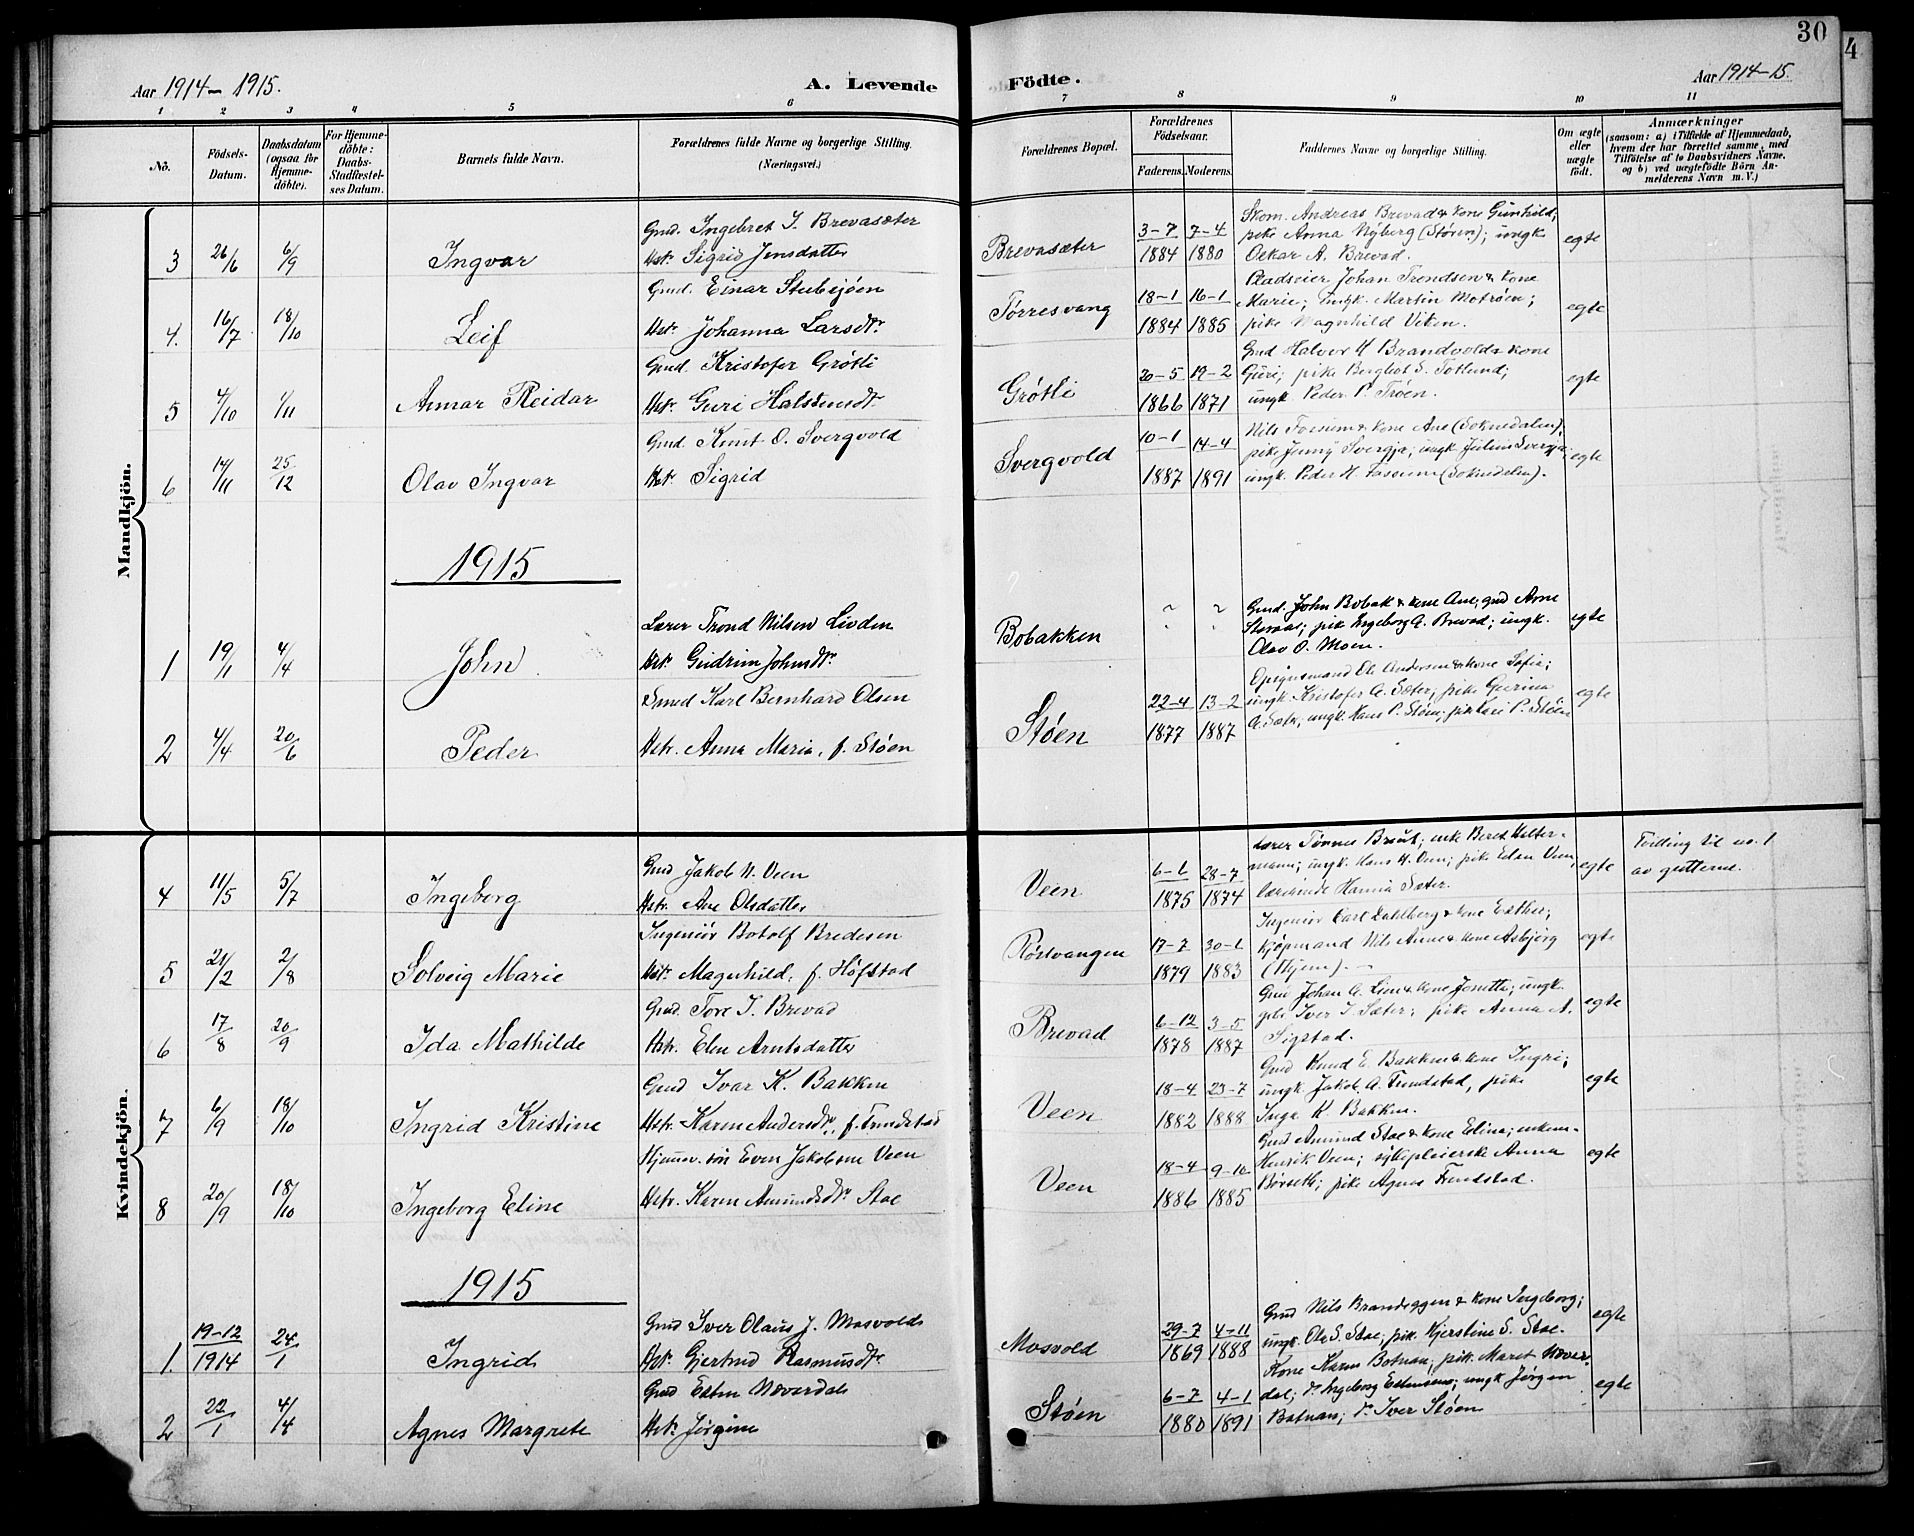 30
4
Aar 1914-1915.
A. Levende Födte.
Aar 1914-15.
1 2 3 4 5 6 7 8 9 10 11
No.
Födsels-Datum.
Daabsdatum (ogsaa for Hjemme-döbte).
For Hjemme-döbte: Daabs-Stadfæstel-ses Datum.
Barnets fulde Navn.
Forældrenes fulde Navne og borgerlige Stilling.
(Næringsvei.)
Forældrenes Bopæl.
Forældrenes Födselsaar.
Faderens. Moderens.
Faddernes Navne og borgerlige Stilling.
Om ægte eller uægte födt.
Anmærkninger
(saasom: a) i Tilfælde af Hjemmedaab, hvem der har forrettet samme, med Tilföielse af to Daabsvidners Navne, og b) ved uægtefödte Börn An-melderens Navn m. V.)
Mandkjön.
3 26/6 6/9 Ingvar
Gmd. Ingebret I. Brevasæter
Hstr. Sigrid Jensdatter
Brevasæter
3-7 1884 7-4 1880
Skom. Andreas Brevad & kone Gunhild;
pike Anna Nyberg (Støren); ungk.
Oskar A. Brevad.
egte
4. 16/7 18/10 Leif
Gmd. Einar Stubsjøen
Hstr. Johanna Larsdtr.
Tørresvang
18-1 1884 16-1 1885
Pladseier Johan Trondsen & kone
Marie; ungk. Martin Motrøen;
pike Magnhild Viken.
egte
5 4/10 1/11 Anmar Reidar
Gmd. Kristofer Grøtli
Hstr. Guri Halstensdtr.
Grøtli
20-5 1866 19-2 1871
Gmd Halvor H Brandvold & kone
Guri; pike Bergliot S. Totlund;
ungk. Peder P. Trøen.
egte
6 14/11 25/12 Olav Ingvar
Gmd. Knut O. Svergvold
Hstr. Sigrid
Svergvold
10-1 1887 14-4 1891
Nils Fossum & kone Ane (Soknedalen);
pike Jenny Svergja; ungk Julius Svergja;
ungk. Peder H. Fossum (Soknedalen).
egte
1915
1 19/1 4/4 John
Lærer Trond Nilsen Livden
Hstr. Gudrun Johnsdtr.
Bobakken
Gmd. John Bobak & kone Ane; gmd Arne
Storaas; pik Ingeborg A. Brevad; ungk.
Olav O. Moen.
egte
2 4/4 20/6 Peder
Smed Karl Bernhard Olsen
Hstr. Anna Maria, f. Støen
Støen
22-4 1877 13-2 1887
Opsynsmand Ole Andersen & kone Sofie;
ungk. Kristofer A. Sæter; pike Gurina
A. Sæter, ungk. Hans P. Støen; pik Kari P. Støen
egte
Kvindekjön.
4 11/5 5/7 Ingeborg
Gmd Jakob N. Veen
Hstr. Ane Olsdatter
Veen
6-6 1875 28-7 1874
Lærer Tønnes Braut; enke Beret Halter-
mann; ungk. Hans H. Veen; pike Eden Veen,
lærerinde Hanna Sæter.
egte
Tvilling til no. 1
av guttene.
5 21/2 2/8 Solveig Marie
Ingeniør Botolf Bredesen
Hstr. Magnhild, f. Høfstad
Røstvangen
17-7 1879 30-1 1883
Ingeniør Carl Dahlberg & kone Esther;
kjøpmand Nils Anne & kone Asbjørg
(Hjem).
egte
6 17/8 20/9 Ida Mathilde
Gmd. Tore I. Brevad
Hstr. Elen Arntsdatter
Brevad
6-12 1878 3-5 1887
Gmd Johan A. Lien & kone Jonetta; ungk.
gbr Iver I. Sæter; pike Anna A.
Sigstad.
egte
7 6/9 18/10 Ingrid Kristine
Gmd Ivar K. Bakken
Hstr. Karen Andersdtr., f. Trudstad
Veen
18-4 1882 23-7 1888
Gmd Knud E. Bakken & kone Ingri;
ungk Jakob A. Trudstad, pike
Inga K Bakken.
egte
8 20/9 18/10 Ingeborg Eline
Hjemmev. søn Even Jakobsen Veen
Hstr. Karen Amundsdtr. Stae
Veen
18-4 1886 9-10 1885
Gmd Amund Stae & kone Elina; enkem.
Henrik Veen; sykepleierske Anna
Børseth; pike Agnes Trudstad.
egte
1915
1. 19-12 1914 24/1 Ingrid
Gmd Iver Olaus J. Mosvold
Hstr. Gjertrud Rasmusdtr.
Mosvold
29-7 1869 4-11 1888
Gmd Nils Brandeggen & kone Ingeborg;
ungk. Ole S. Stae; pik. Kjerstine S. Stae.
egte
2 22/1 4/4 Agnes Margrete
Gmd Esten Næverdal
Hstr. Jørgine
Støen
6-7 1880 4-1 1891
Kone Karen Botnan; pik. Maret Næver-
dal; Do Ingeborg Estensen; ungk Jørgen
Botnan; Do Iver Støen
egte